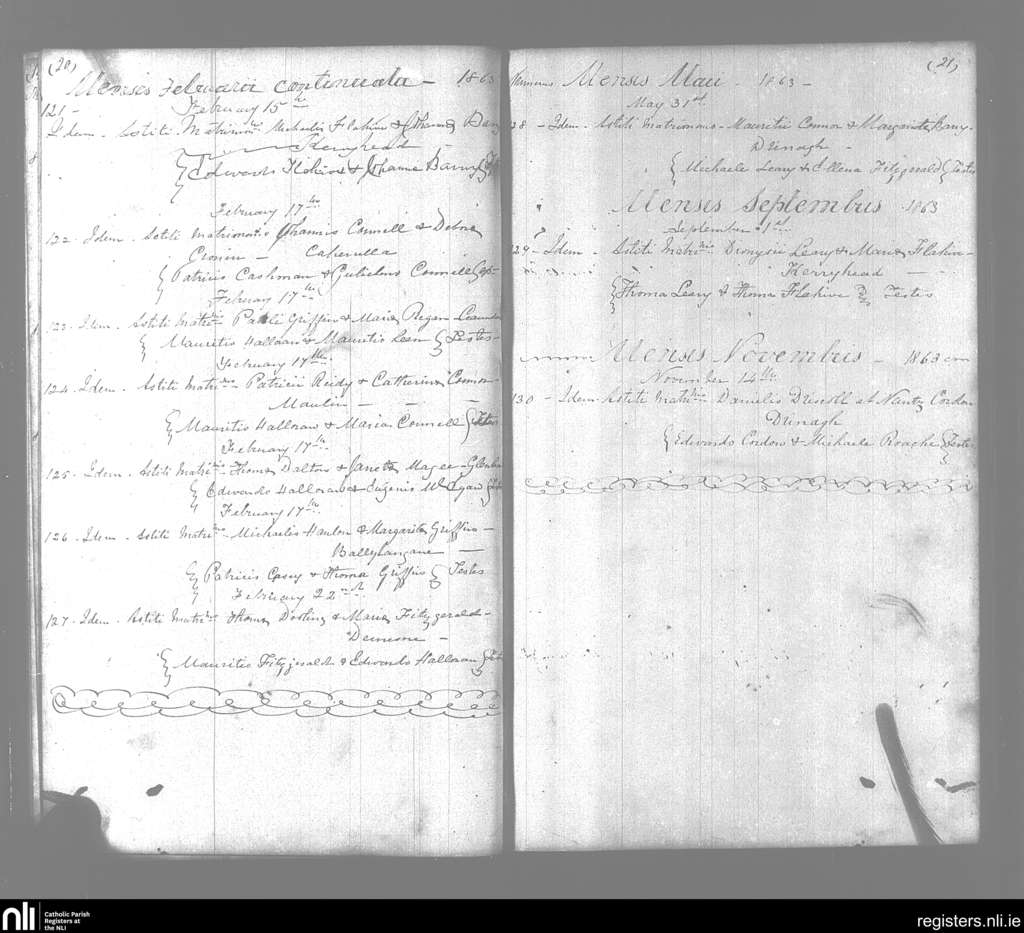 (20)
Mensis Februarii continuata - 1863
121 - February 15th
Idem. Astiti Matrimon. Michaelis Flahive & Johanna Barry
Kerryhead
Edwardo Flahive & Johanna Barry
February 17th
122 - Idem. Astiti Matrimonio Johannis Connell & Debra
Cronin - Caherulla
Patricio Cashman & Gulielmo Connell
February 17th
123. Idem. Astiti Matrio Patrici Griffin & Maria Regan
Mauritio Halloran & Mauritio Leen Testes
February 17th
124. Idem. Astiti Matrino Patricii Reidy & Catherina Connor
Maulin
Mauritio Halloran & Maria Connell Testes
February 17th
125 - Idem. Astiti Matrio Thoma Dalton & Magee
Edwardo Halloran & Eugenio
February 17th
126 - Idem. Astiti Matrino Michaelis Hanlon & Margarita Griffin -
Ballylangane
Patricio Casey & Thoma Griffin Testes
February 22nd
127 - Idem. Astiti Matrino Thoma & Maria Fitzgerald -
Demesne -
Mauritio Fitzgerald & Edwardo Halloran
(21)
Mensis Maii 1863 -
May 31st
28 - Idem. Astiti Matrimonio - Mauritii Connor & Margarita Barry
Drinagh -
Michaele Leary & Ellena Fitzgerald Testes
Mensis Septembris 1863
September 1st
129 - Idem Astiti Matrio Dionysii Leary & Maria Flahive -
Kerryhead
Thoma Leary & Thoma Flahive Testes
Mensis Novembris - 1863
November 14th
130 - Idem. Astiti Matrio Danielis Driscoll et Nancy Cordon
Drinagh
Edwardo Cordon & Michaele Roache Testes
nli
Catholic Parish
Registers at
the NLI
registers.nli.ie